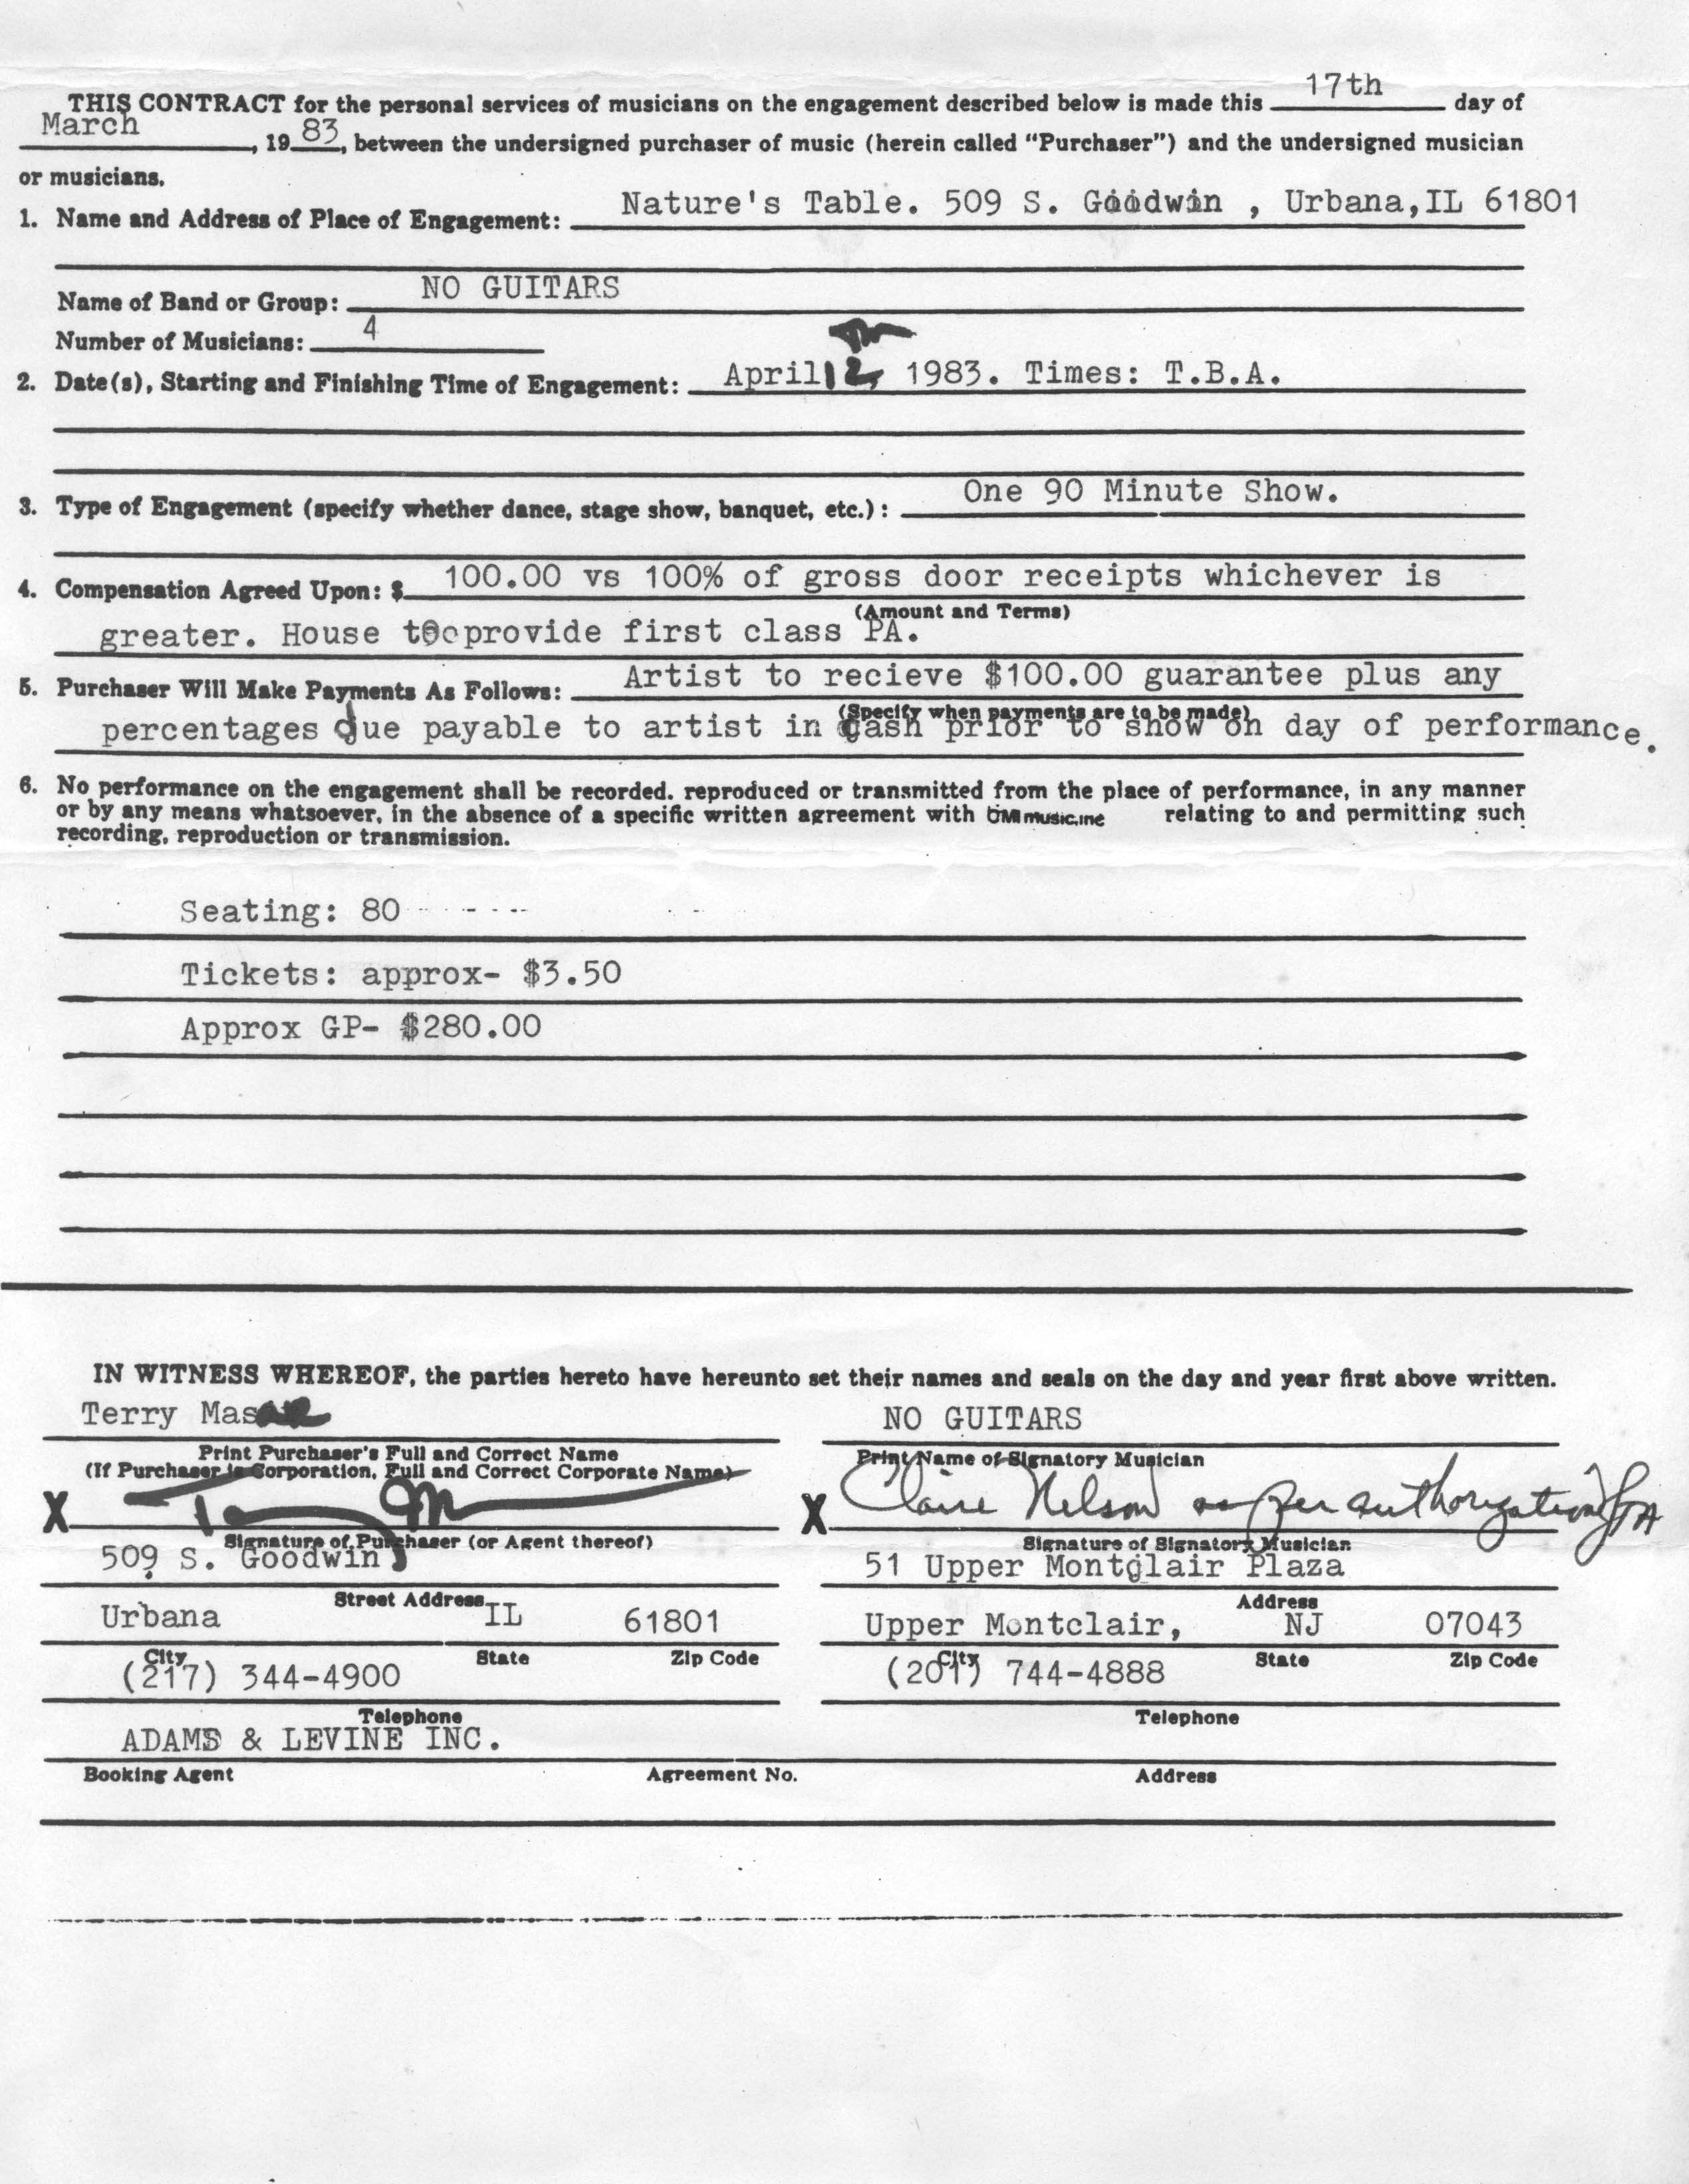 17th
THIS CONTRACT for the personal services of musicians on the engagement described below is made this day of
March , 19 83, between the undersigned purchaser of music (herein called "Purchaser") and the undersigned musician
or musicians.
1. Name and Address of Place of Engagement: Nature's Table. 509 S. Goodwin , Urbana,IL 61801
Name of Band or Group: NO GUITARS
Number of Musicians: 4
2. Date(s), Starting and Finishing Time of Engagement: April 12, 1983. Times: T.B.A.
3. Type of Engagement (specify whether dance, stage show, banquet, etc.): One 90 Minute Show.
4. Compensation Agreed Upon: $ 100.00 vs 100% of gross door receipts whichever is
(Amount and Terms)
greater. House to provide first class PA.
5. Purchaser Will Make Payments As Follows: Artist to recieve $100.00 guarantee plus any
(Specify when payments are to be made)
percentages due payable to artist in cash prior to show on day of performance.
6. No performance on the engagement shall be recorded. reproduced or transmitted from the place of performance, in any manner
or by any means whatsoever, in the absence of a specific written agreement with relating to and permitting such
recording, reproduction or transmission.
Seating: 80
Tickets: approx- $3.50
Approx GP- $280.00
IN WITNESS WHEREOF, the parties hereto have hereunto set their names and seals on the day and year first above written.
Terry NO GUITARS
Print Purchaser's Full and Correct Name Print Name of Signatory Musician
(If Purchaser is Corporation, Full and Correct Corporate Name)
X X Claire Nelson as per authorization
Signature of Purchaser (or Agent thereof) Signature of Signatory Musician
509 S. Goodwin 51 Upper Montclair Plaza
Street Address Address
Urbana IL 61801 Upper Montclair, NJ 07043
City State Zip Code City State Zip Code
(217) 344-4900 (201) 744-4888
Telephone Telephone
ADAMS & LEVINE INC.
Booking Agent Agreement No. Address